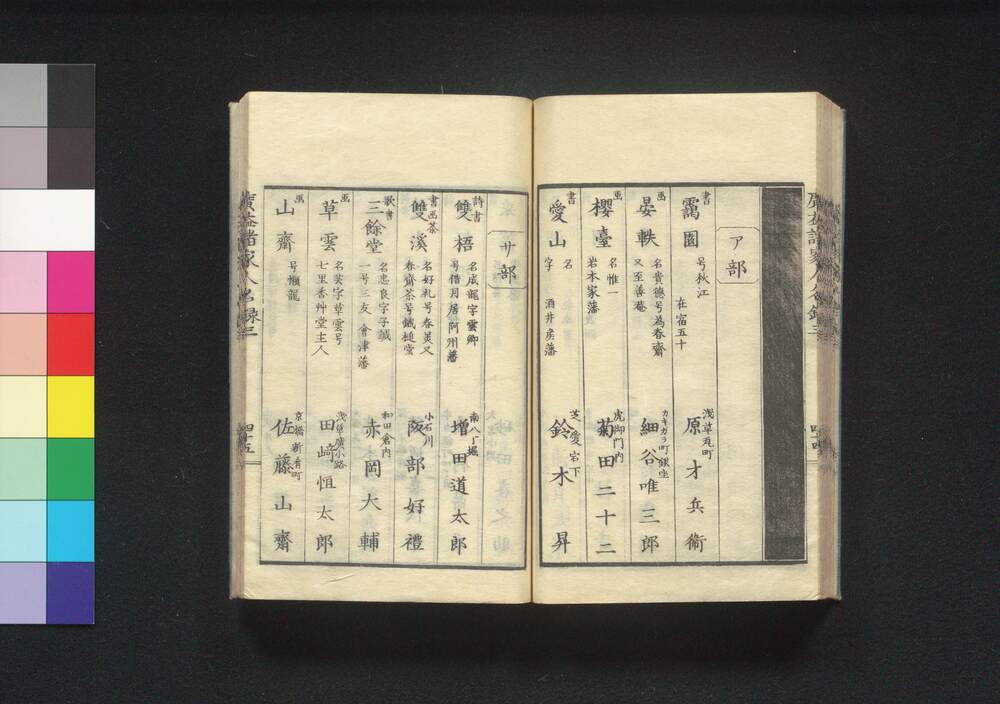 ア部
書
靄園
号秋江
在留五十
浅草瓦町
原才兵衛
画
晏軼
名貴徳号為春齋
又至善菴
カキガラ町銀座
細谷唯三郎
画
櫻臺
名惟一
岩木家藩
虎御門内
菊田二十二
書
愛山
名
字
酒井矦藩
芝愛宕下
鈴木昇
サ部
詩書
雙梧
名成龍字雲卿
号借月居阿州藩
南八丁堀
増田道太郎
書画茶
雙溪
名好礼号春美又
春齋茶号鐵槌堂
小石川
阪部好禮
歌書
三餘堂
名忠良字子誠
一号三友會津藩
和田倉内
赤岡大輔
画
草雲
名芸字草雲号
七里香艸堂主人
浅草廣小路
田﨑恒太郎
画
山齋
号懶龍
京橋新肴町
佐藤山齋
廣益諸家人名録三
四十五